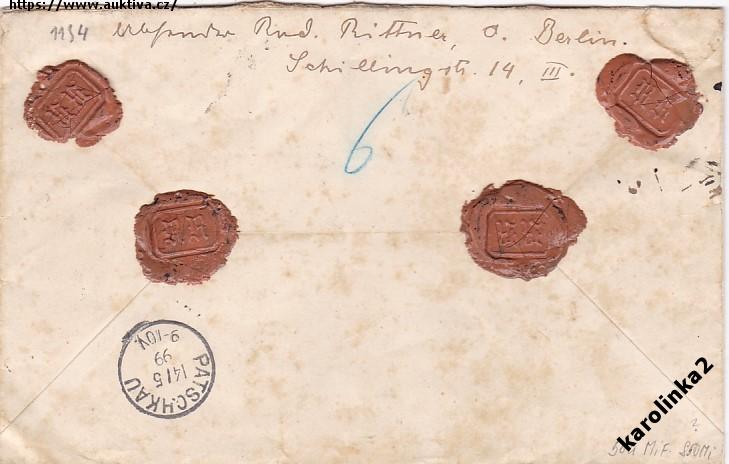 https://www.auktiva.cz/
1134 Absender Rud. Rittner, O. Berlin.
Schillingstr. 14, III.
6
PATSCHKAU
14/5
99
9-10V.
karolinka2
?
MiF.